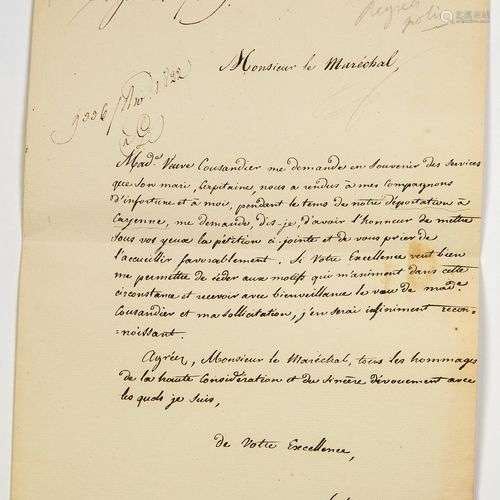 Monsieur le Maréchal,
Mad.e Veuve Cousandier me demande en souvenir des services
que son mari, Capitaine, nous a rendus à mes Compagnons
d'infortune et à moi, pendant le tems de notre déportation à
Cayenne, me demande, dis-je, d'avoir l'honneur de mettre
sous vos yeux la pétition ci jointe et de vous prier de
l'accueillir favorablement. Si Votre Excellence veut bien
me permettre de céder aux motifs qui m'animent dans cette
circonstance et recevoir avec bienveillance le vœu de mad.e
Cousandier et ma sollicitation, j'en serai infiniment recon-
-noissant.
Agréez, Monsieur le Maréchal, tous les hommages
de la haute Considération et du sincère dévouement avec
lesquels je suis,
de Votre Excellence,